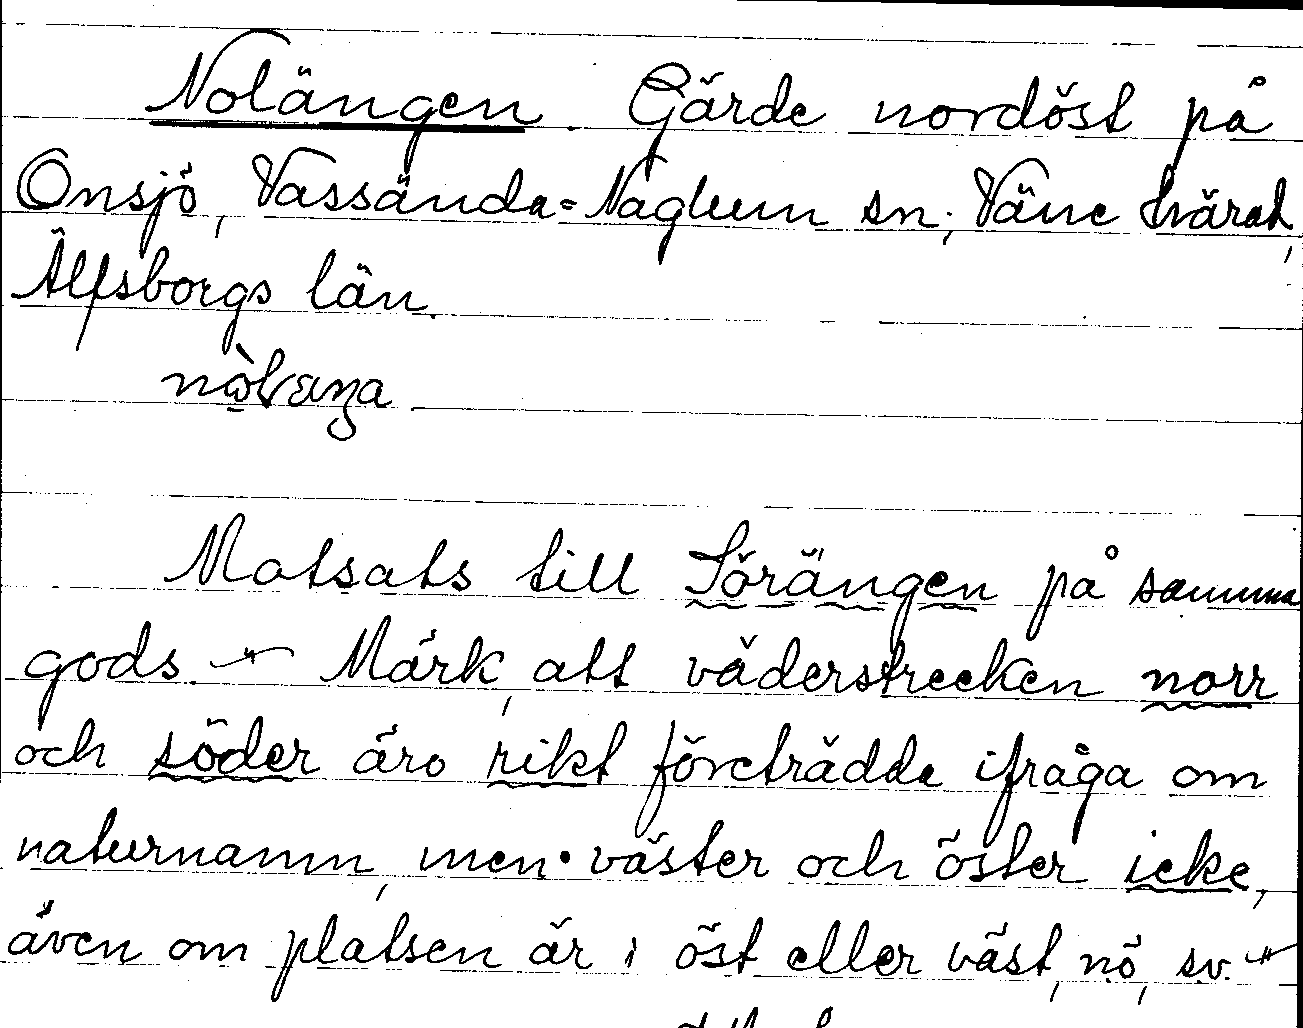 Nolängen. Gärde nordöst på
Onsjö, Vassända-Naglum sn; Väne härad,
Älfsborgs län.
Motsats till Sörängen på samma
gods. – Märk, att väderstrecken norr
och söder äro rikt företrädda ifråga om
naturnamn, men väster och öster icke,
även om platsen är i öst eller väst, nö, sv. –